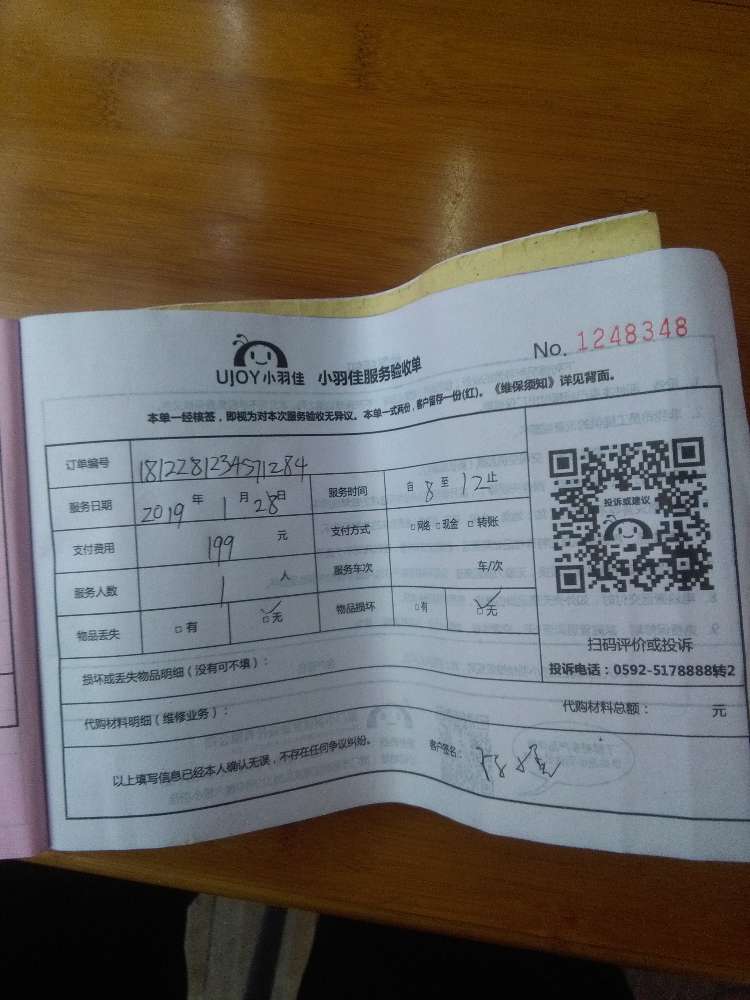 UJOY小羽佳 小羽佳服务验收单
No. 1248348
本单一经核签，即视为对本次服务验收无异议。本单一式两份，客户留存一份(红)。《维保须知》详见背面。
订单编号 1812281234571284
服务日期 2019 年 1 月 28 日 服务时间 自 8 至 12 止
支付费用 199 元 支付方式 □网络 □现金 □转账
服务人数 1 人 服务车次 车/次
物品丢失 □有 □无 物品损坏 □有 □无
投诉或建议
扫码评价或投诉
投诉电话：0592-5178888转2
损坏或丢失物品明细（没有可不填）：
代购材料明细（维修业务）： 代购材料总额： 元
以上填写信息已经本人确认无误，不存在任何争议纠纷。 客户签名：